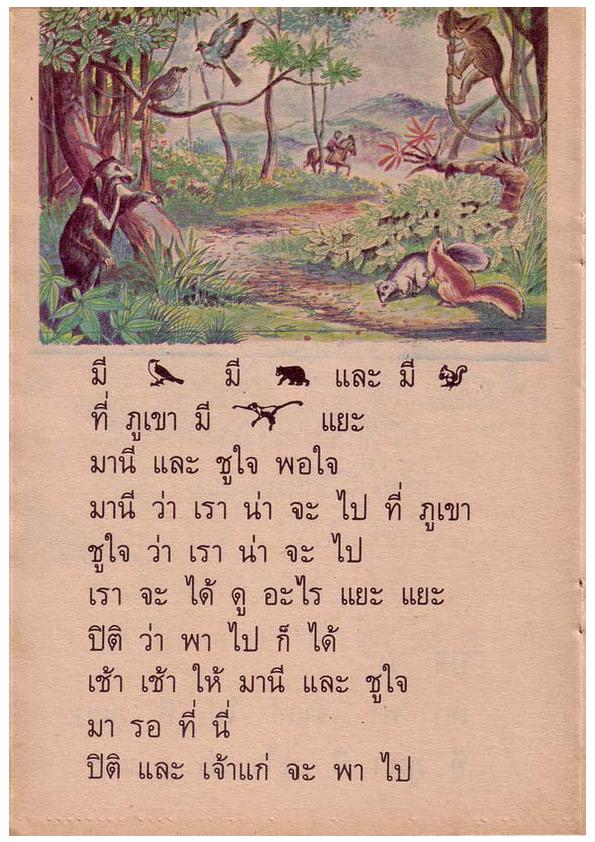 มี มี และ มี
ที่ ภูเขา มี แยะ
มานี และ ชูใจ พอใจ
มานี ว่า เรา น่า จะ ไป ที่ ภูเขา
ชูใจ ว่า เรา น่า จะ ไป
เรา จะ ได้ ดู อะไร แยะ แยะ
ปิติ ว่า พา ไป ก็ ได้
เช้า เช้า ให้ มานี และ ชูใจ
มา รอ ที่ นี่
ปิติ และ เจ้าแก่ จะ พา ไป